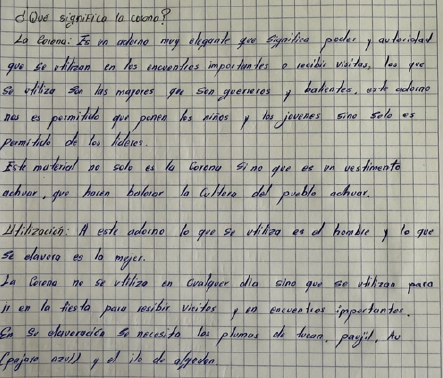 ¿Que significa la corona?
La Corona: Es un adorno muy elegante que significa poder y autoridad
que se utilizan en los encuentros importantes o recibir visitas, los que
se utiliza son las mayores que son guerreros y balientes, este adorno
nos es permitido que ponen los niños y los jovenes sino solo es
permitido de los lideres.
Este material no solo es la Corona sino que es un vestimento
achuar, que hasen balorar la Cultera del pueblo achuar.
Utilización: A este adorno lo que se utiliza es el hombre y lo que
se elavora es la mujer.
La Corona no se utiliza en cualquer dia sino que se utilizan para
ir en la fiesta para resibir visitas y en encuentros importantes.
En su elaveración se necesita las plumas de tucan, paujil,
(pajaro azul) y el ilo de algodon.